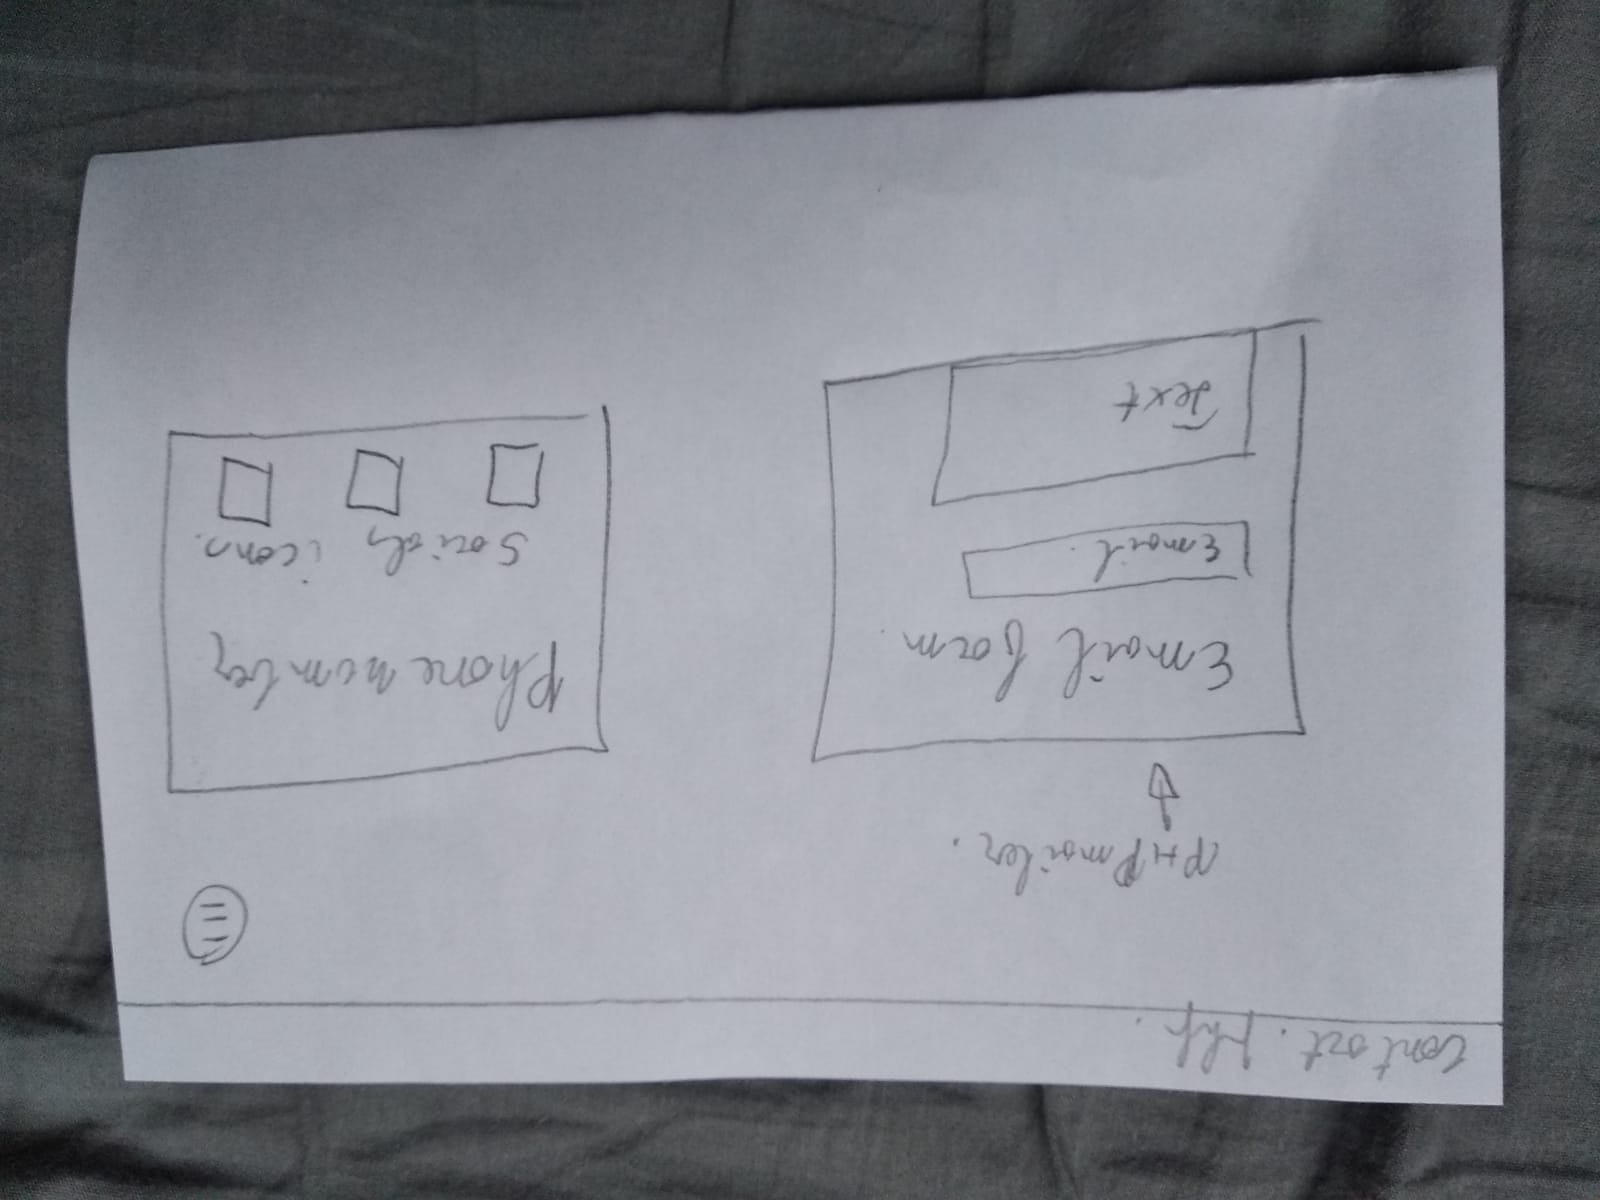 contact.php.
PHPmailer.
Email form.
Email.
Text
Phone number
Socials icons.